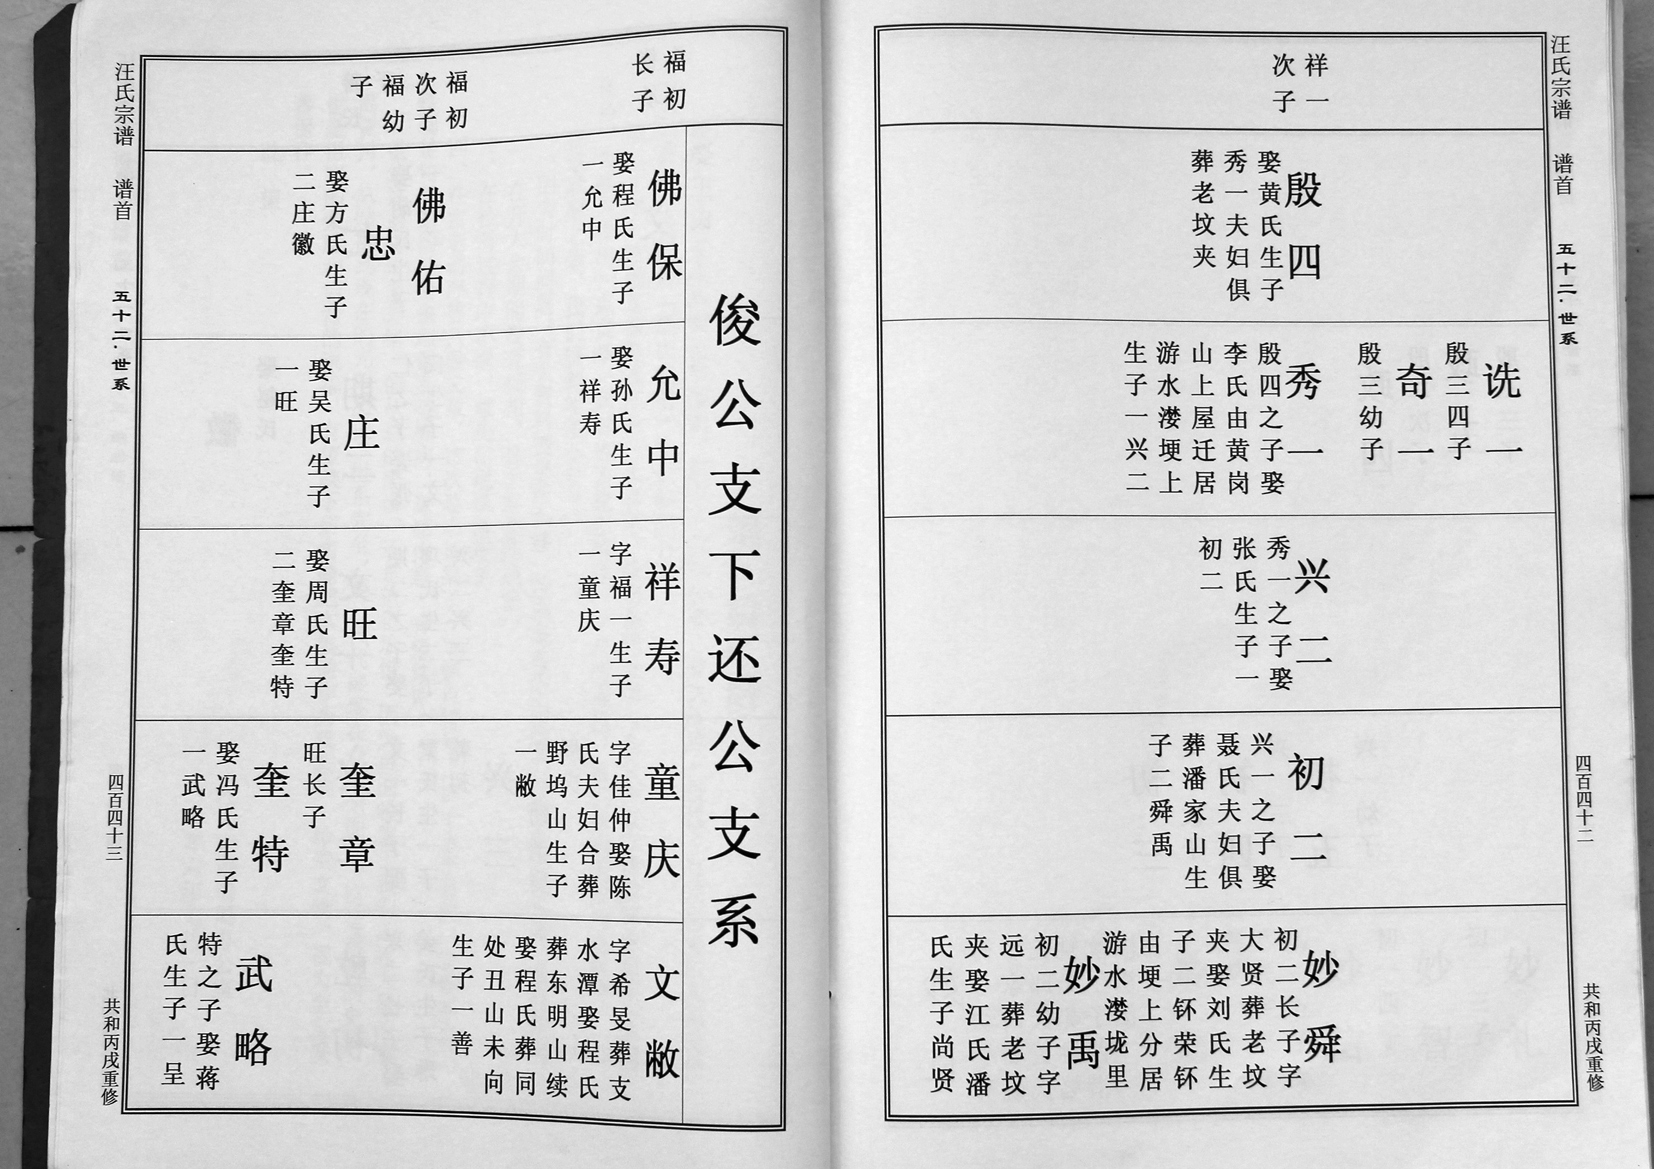 汪氏宗谱 谱首 五十二·世系 四百四十二 共和丙戌重修
祥一
次子
殷四
娶黄氏生子
秀一夫妇俱
葬老坟夹
诜一
殷三四子
奇一
殷三幼子
秀一
殷四之子娶
李氏由黄岗
山上屋迁居
游水漤埂上
生子一兴二
兴二
秀一之子娶
张氏生子一
初二
初二
兴一之子娶
聂氏夫妇俱
葬潘家山生
子二舜禹
妙舜
初二长子字
大贤葬老坟
夹娶刘氏生
子二钚荣钚
由埂上分居
游水漤垅里
妙禹
初二幼子字
远一葬老坟
夹娶江氏潘
氏生子尚贤
俊公支下还公支系
福初
长子
福初
次子
福幼
子
佛保
娶程氏生子
一允中
佛佑
忠
娶方氏生子
二庄徽
允中
娶孙氏生子
一祥寿
庄
娶吴氏生子
一旺
祥寿
字福一生子
一童庆
旺
娶周氏生子
二奎章奎特
童庆
字佳仲娶陈
氏夫妇合葬
野坞山生子
一敝
奎章
旺长子
奎特
娶冯氏生子
一武略
文敝
字希旻葬支
水潭娶程氏
葬东明山续
娶程氏葬同
处丑山未向
生子一善
武略
特之子娶蒋
氏生子一呈
汪氏宗谱 谱首 五十二·世系 四百四十三 共和丙戌重修